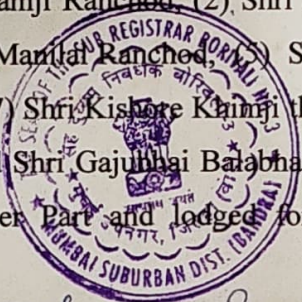 amji Ranchod, (2) Shri
Manilal Ranchod, (5) S
7) Shri Kishore Khimji th
Shri Gajubhai Balabha
er Part and lodged fo
SEAL OF THE SUB REGISTRAR BORIVALI No. 3
MUMBAI SUBURBAN DIST. (BANDRA)
सह दुय्यम निबंधक बोरिवली
मुंबई उपनगर, जि
सत्यमेव जयते